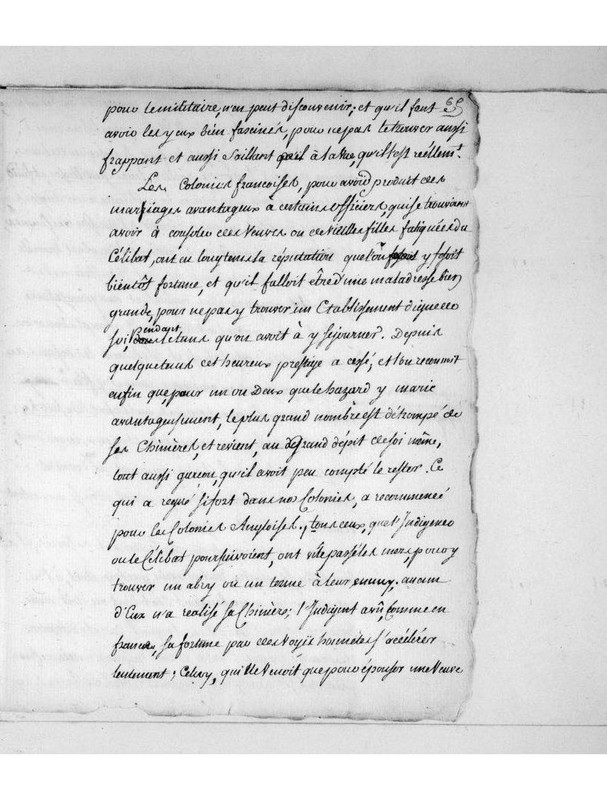 pour le militaire, n'en peut disconvenir; et qu'il faut
avoir les yeux bien fascinés, pour ne pas le trouver aussi
frappant et aussi saillant à la vue, qu'il l'est réellemt.
Les Colonies françoises, pour avoir produit des
mariages avantageux à certains officiers, qui se trouvoient
avoir à consoler des Veuves ou des vieilles filles fatiguées du
Célibat, ont eu longtems la réputation que l'on y fesoit
bientôt fortune, et qu'il falloit être d'une maladresse bien
grande, pour ne pas y trouver un Etablissement
soit, pendant le tems qu'on avoit à y séjourner. Depuis
quelque tems cet heureux prestige a cessé; et l'on reconnoit
enfin que, pour un ou Deux que le hazard y marie
avantageusement, le plus grand nombre est détrompé de
ses Chimères, et revient, au grand dépit de soi même,
tout aussi gueux, qu'il avoit peu compté le rester. Ce
qui a regné si fort dans nos Colonies, a recommencé
pour les Colonies Angloises; tous ceux, que l'Indigence
ou le Célibat poursuivoient, ont vite passé les mers, pour y
trouver un abry ou un terme à leur ennuy, aucun
d'Eux n'a realisé sa Chimère; l'Indigent a vû, comme en
france, sa fortune par des voyes honnêtes s'accélérer
lentement; Celuy, qui ne venoit que pour épouser une Veuve